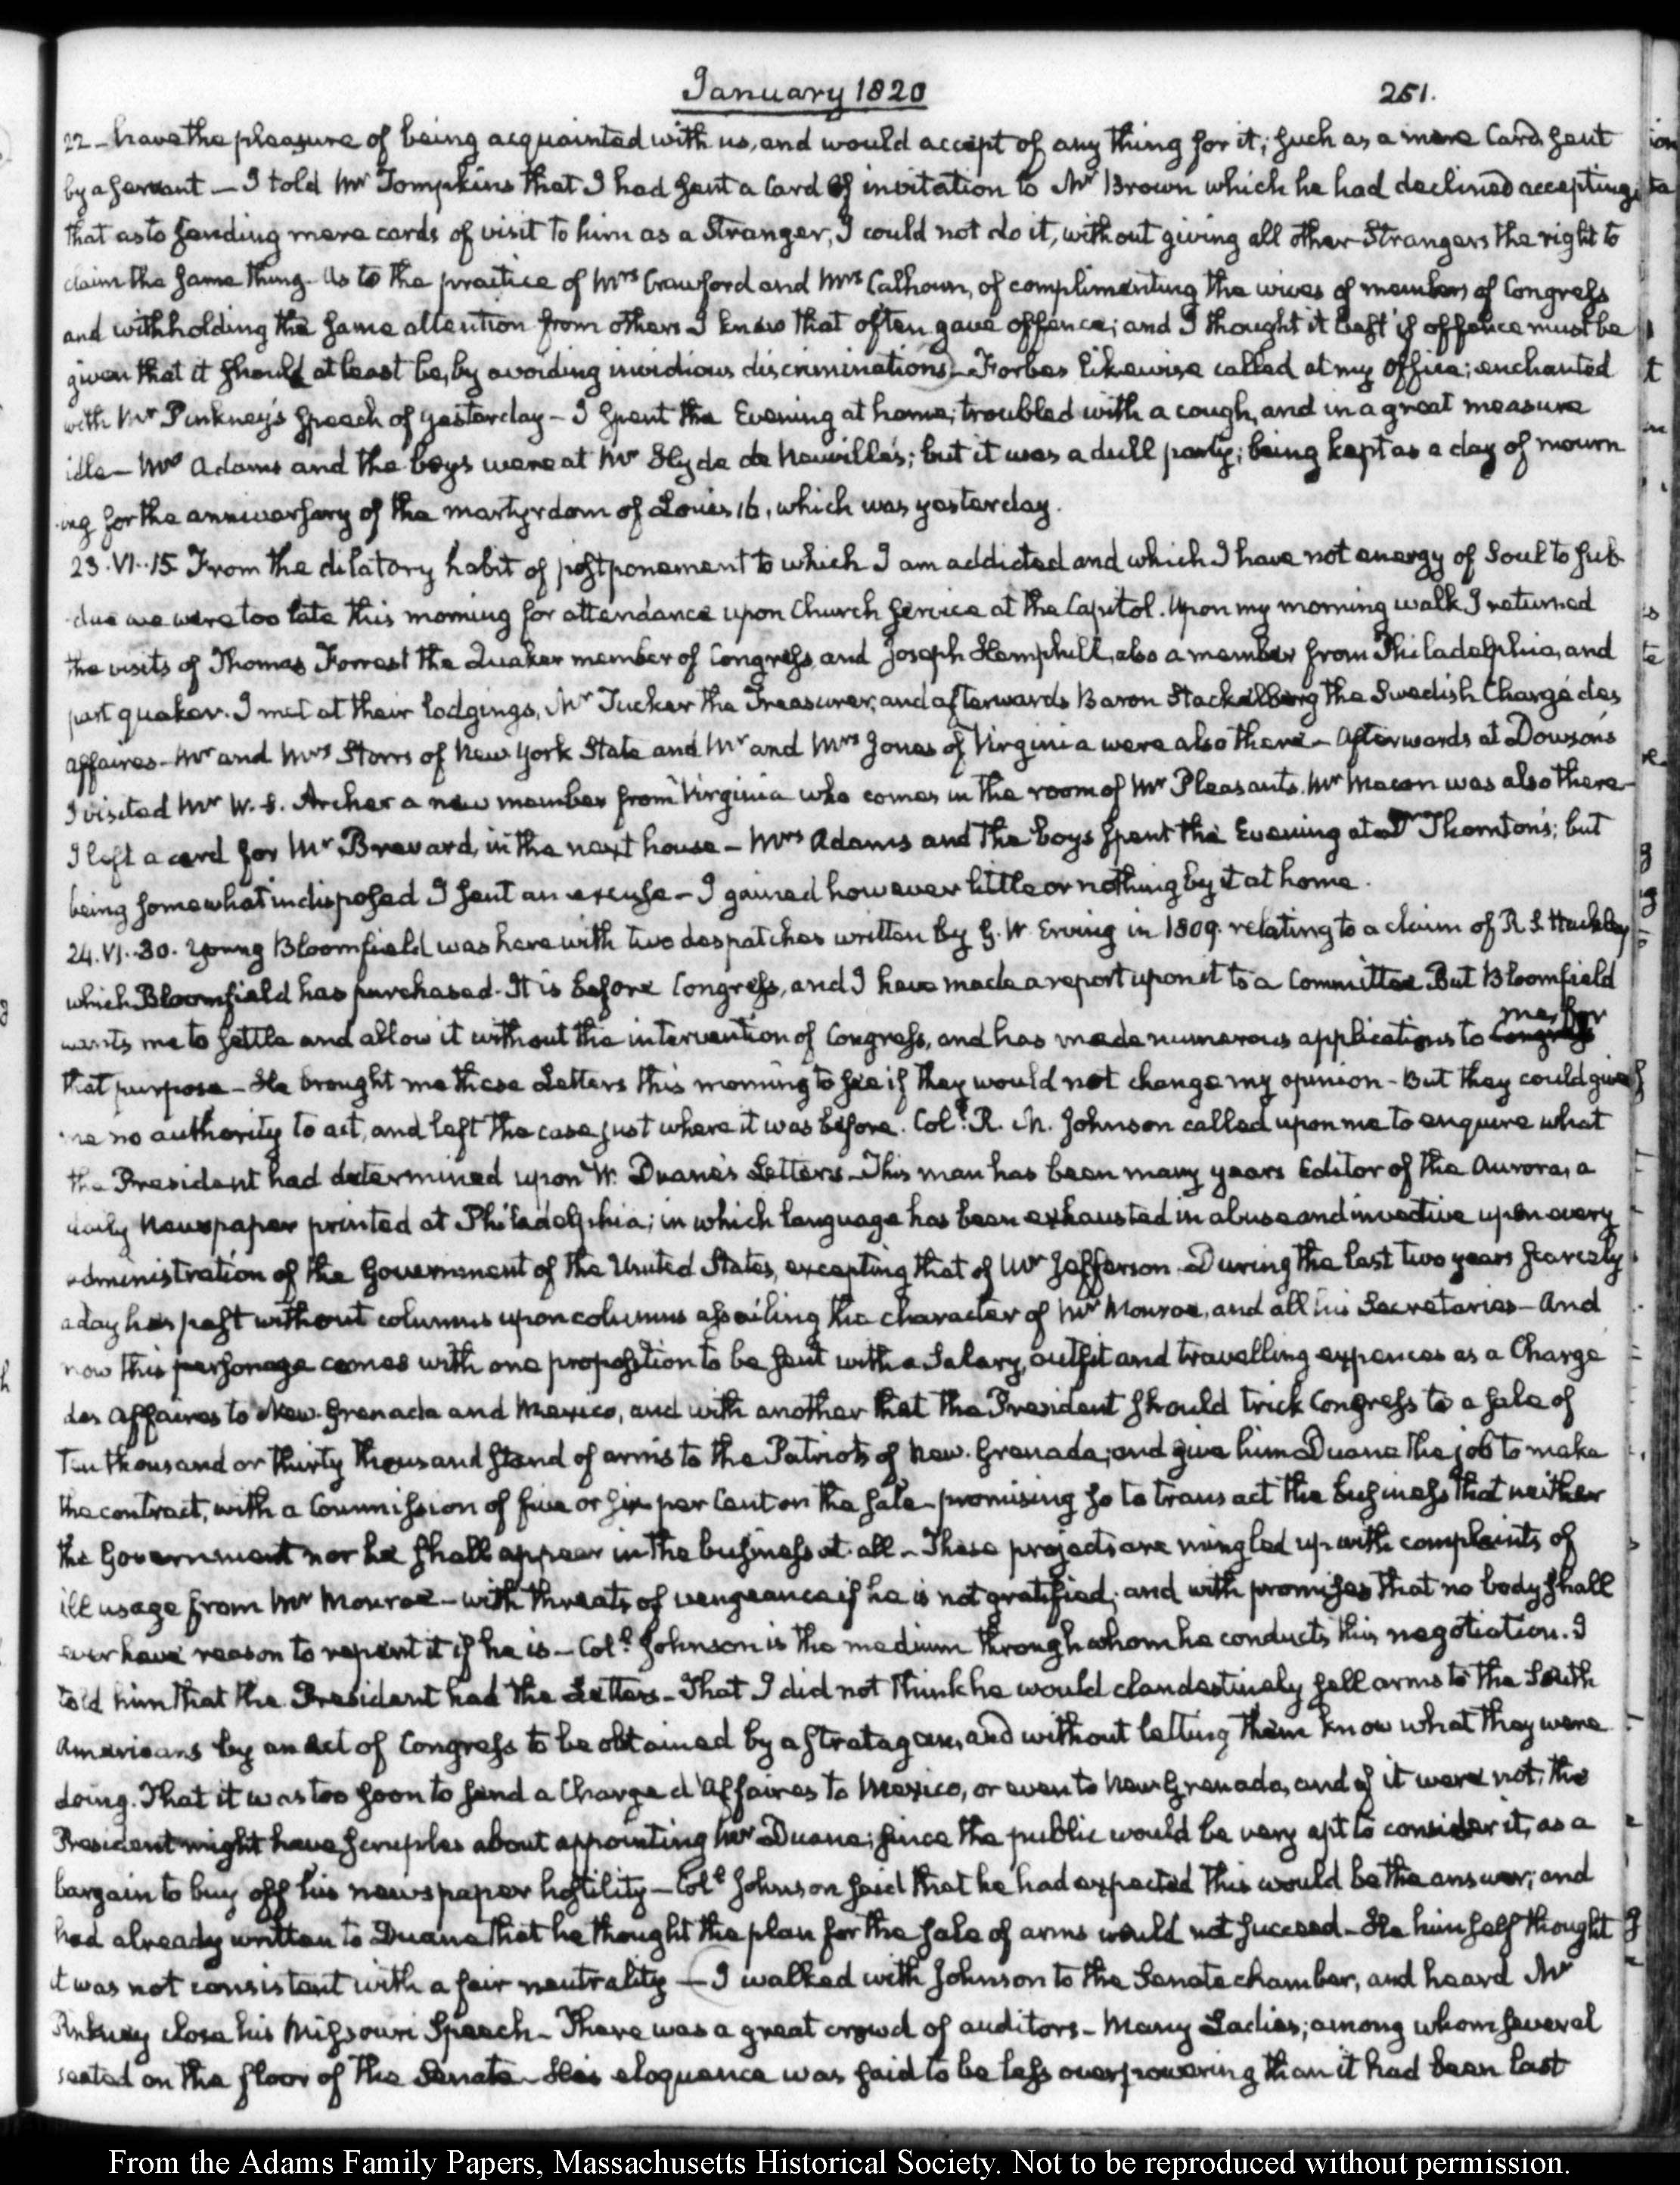 January 1820
251.
22 - have the pleasure of being acquainted with us, and would accept of any thing for it; such as a mere Card sent
by a servant — I told Mr Tompkins that I had sent a Card of invitation to Mr Brown which he had declined accepting,
that as to sending mere cards of visit to him as a Stranger, I could not do it, without giving all other Strangers the right to
claim the same thing. As to the practice of Mrs Crawford and Mrs Calhoun, of complimenting the wives of members of Congress
and withholding the same attention from others I knew that often gave offence; and I thought it best if offence must be
given that it should at least be, by avoiding invidious discriminations) - Forbes likewise called at my Office; enchanted
with Mr Pinkney's Speech of yesterday - I spent the Evening at home, troubled with a cough, and in a great measure
idle - Mrs Adams and the boys were at Mr Hyde de Neuville's; but it was a dull party; being kept as a day of mourn
-ing for the anniversary of the martyrdom of Louis 16, which was yesterday.
23. VI..15. From the dilatory habit of postponement to which I am addicted and which I have not energy of Soul to sub-
-due we were too late this morning for attendance upon Church service at the Capitol. Upon my morning walk I returned
the visits of Thomas Forrest the Quaker member of Congress, and Joseph Hemphill, also a member from Philadelphia, and
part quaker. I met at their lodgings, Mr Tucker the Treasurer, and afterwards Baron Stackelberg the Swedish Chargé des
affaires - Mr and Mrs Storrs of New York State and Mr and Mrs Jones of Virginia were also there - Afterwards at Dowson's
I visited Mr W. S. Archer a new member from Virginia who comes in the room of Mr Pleasants. Mr Macon was also there -
I left a card for Mr Brevard, in the next house - Mrs Adams and the boys spent the Evening at Dr Thornton's; but
being somewhat indisposed I sent an excuse - I gained however little or nothing by it at home.
24. VI..30. Young Bloomfield was here with two despatches written by G. W. Erving in 1809. relating to a claim of R. S. Hackley
which Bloomfield has purchased. It is before Congress, and I have made a report upon it to a Committee. But Bloomfield
wants me to settle and allow it without the intervention of Congress, and has made numerous applications to Congress me, for
that purpose - He brought me these Letters this morning to see if they would not change my opinion - But they could give
me no authority to act, and left the case just where it was before. Coll. R. M. Johnson called upon me to enquire what
the President had determined upon W. Duane's Letters - This man has been many years Editor of the Aurora, a
daily Newspaper printed at Philadelphia; in which language has been exhausted in abuse and invective upon every
administration of the Government of the United States, excepting that of Mr Jefferson - During the last two years scarcely
a day has past without columns upon columns assailing the character of Mr Monroe, and all his Secretaries - And
now this personage comes with one proposition to be sent with a Salary, outfit and travelling expences as a Chargé
des Affaires to New-Grenada and Mexico, and with another that the President should trick Congress to a sale of
Ten thousand or thirty thousand stand of arms to the Patriots of New-Grenada; and give him Duane the job to make
the contract, with a Commission of five or six per Cent on the sale - promising so to transact the business that neither
the Government nor he shall appear in the business at all - These projects are mingled up with complaints of
ill usage from Mr Monroe - with threats of vengeance if he is not gratified; and with promises that no body shall
ever have reason to repent it if he is - Coll. Johnson is the medium through whom he conducts this negotiation. I
told him that the President had the Letters - That I did not think he would clandestinely sell arms to the South
Americans by an Act of Congress to be obtained by a stratagem, and without letting them know what they were
doing. That it was too soon to send a Charge d'Affaires to Mexico, or even to New Grenada, and if it were not, the
President might have scruples about appointing Mr Duane; since the public would be very apt to consider it, as a
bargain to buy off his newspaper hostility - Coll. Johnson said that he had expected this would be the answer; and
had already written to Duane that he thought the plan for the sale of arms would not succeed - He himself thought
it was not consistent with a fair neutrality - (I walked with Johnson to the Senate chamber, and heard Mr
Pinkney close his Missouri Speech - There was a great crowd of auditors - Many Ladies; among whom several
seated on the floor of the Senate - His eloquence was said to be less overpowering than it had been last
From the Adams Family Papers, Massachusetts Historical Society. Not to be reproduced without permission.